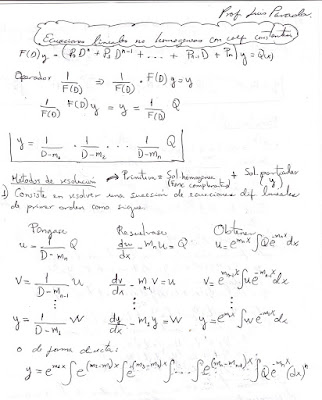 Prof. Luis
Ecuaciones lineales no homogeneas con coef. constantes
F(D)y = (P₀Dⁿ + P₁Dⁿ⁻¹ + ... + Pₙ₋₁D + Pₙ)y = Q(x)
Operador 1/F(D) ⇒ 1/F(D) · F(D)y = y
1/F(D) F(D)y = y = 1/F(D) Q
y = 1/(D-m₁) · 1/(D-m₂) ... 1/(D-mₙ) Q
Métodos de resolución → Primitiva = Sol. homogenea + Sol. particular
(Func. complementaria) y
1) Consiste en resolver una sucesión de ecuaciones dif. lineales
de primer orden como sigue.
Póngase Resuelvase Obtener
u = 1/(D-mₙ) Q du/dx - mₙu = Q u = e^(mₙx) ∫Qe^(-mₙx) dx
V = 1/(D-mₙ₋₁) u dv/dx - mₙ₋₁V = u V = e^(mₙ₋₁x) ∫ue^(-mₙ₋₁x) dx
⋮ ⋮ ⋮
y = 1/(D-m₁) W dy/dx - m₁y = W y = e^(m₁x) ∫we^(-m₁x) dx
o de forma directa:
y = e^(m₁x) ∫e^(m₂-m₁)x ∫e^(m₃-m₂)x ∫ ... ∫e^(mₙ-mₙ₋₁)x ∫Qe^(-mₙx) (dx)ⁿ